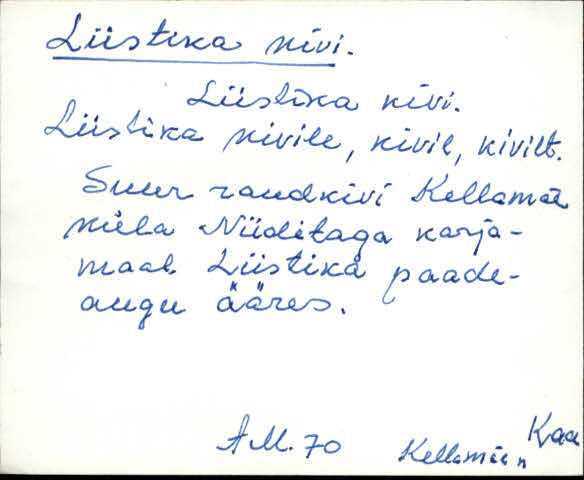 Liistika kivi.
Liistika kivi.
Liistika kivile, kivil, kivilt.
Suur raudkivi Kellamäe
küla Niiditaga karja-
maal Liistika paade-
augu ääres.
A.M. 70 Kellamäe n Kaa